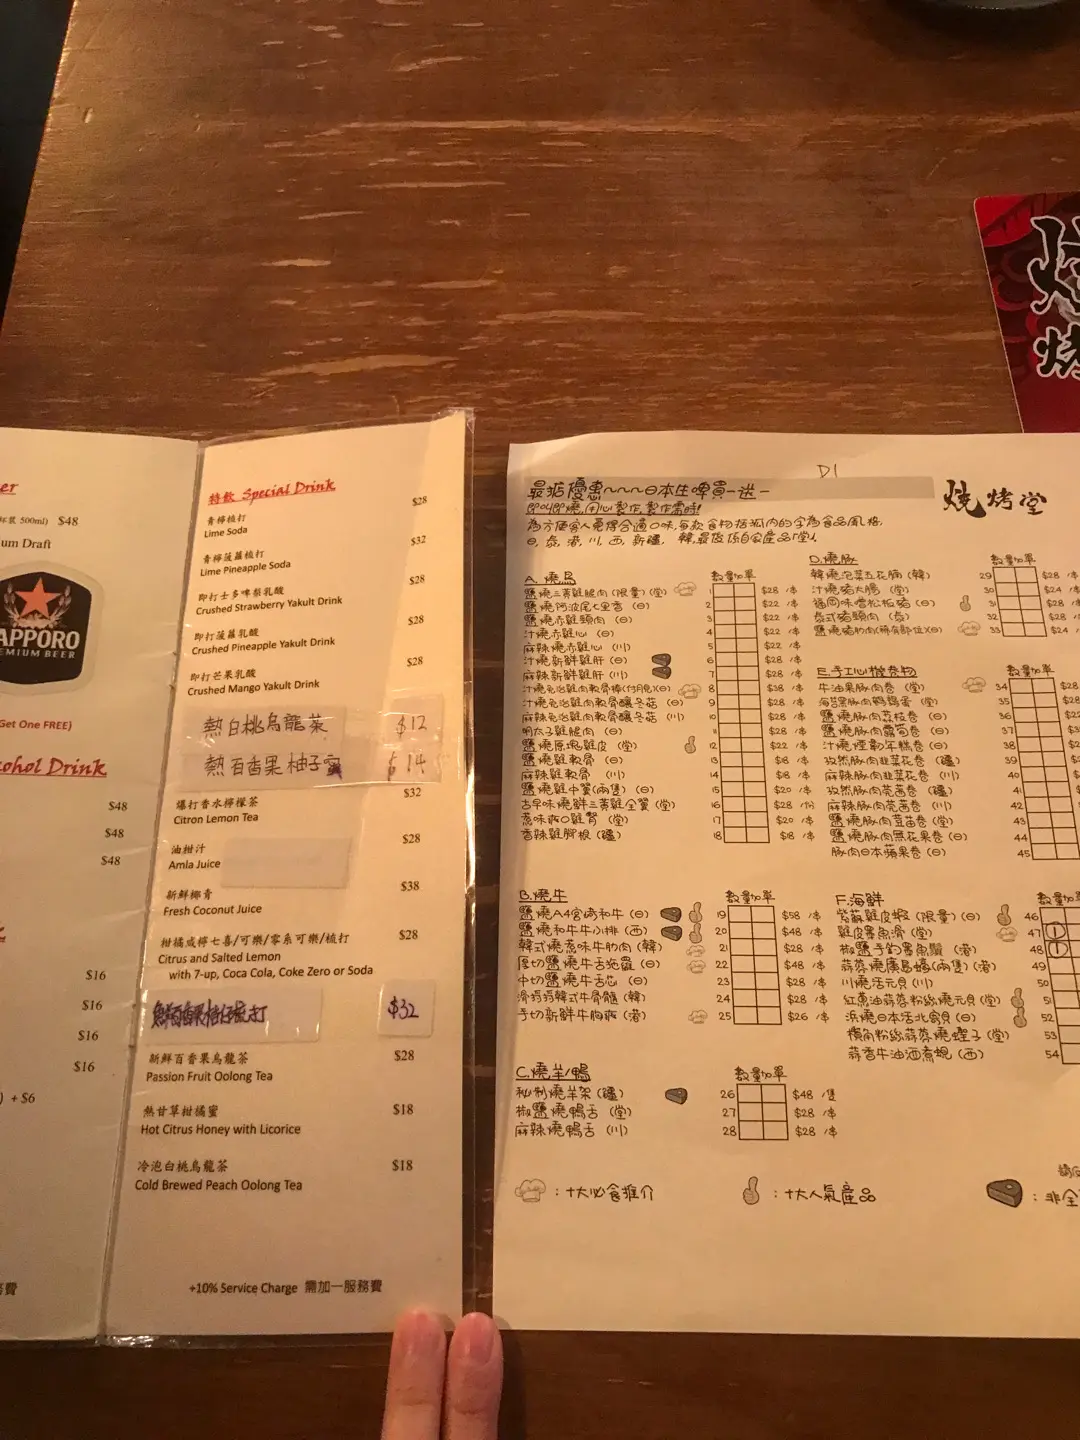 er
500ml) $48
um Draft
SAPPORO
PREMIUM BEER
Get One FREE)
ohol Drink
$48
$48
$48
$16
$16
$16
$16
) + $6
特飲 Special Drink
青檸梳打 $28
Lime Soda
青檸菠蘿梳打 $32
Lime Pineapple Soda
即打士多啤梨乳酸 $28
Crushed Strawberry Yakult Drink
即打菠蘿乳酸 $28
Crushed Pineapple Yakult Drink
即打芒果乳酸 $28
Crushed Mango Yakult Drink
熱白桃烏龍茶 $12
熱百香果柚子蜜 $14
爆打香水檸檬茶 $32
Citron Lemon Tea
油柑汁 $28
Amla Juice
新鮮椰青 $38
Fresh Coconut Juice
柑橘咸檸七喜/可樂/零系可樂/梳打 $28
Citrus and Salted Lemon
with 7-up, Coca Cola, Coke Zero or Soda
$32
新鮮百香果烏龍茶 $28
Passion Fruit Oolong Tea
熱甘草柑橘蜜 $18
Hot Citrus Honey with Licorice
冷泡白桃烏龍茶 $18
Cold Brewed Peach Oolong Tea
+10% Service Charge 需加一服務費
D1
最抵優惠~~~日本生啤買一送一
燒烤堂
即叫即燒,用心製作,製作需時!
為方便客人覓得合適口味,每款食物括弧内的字為食品風格,
日, 泰, 港, 川, 西, 新疆, 韓,最後係自家產品「堂」.
A. 燒鳥 數量加單
鹽燒三黃雞腿肉 (限量) (堂) 1 $28 /串
鹽燒阿波尾七里香 (日) 2 $22 /串
鹽燒赤雞頸肉 (日) 3 $22 /串
汁燒赤雞心 (日) 4 $22 /串
麻辣燒赤雞心 (川) 5 $22 /串
汁燒新鮮雞肝 (日) 6 $28 /串
麻辣新鮮雞肝 (川) 7 $28 /串
汁燒免治雞肉軟骨棒(付月見)(日) 8 $38 /串
汁燒免治雞肉軟骨釀冬菇 (日) 9 $28 /串
麻辣免治雞肉軟骨釀冬菇 (川) 10 $28 /串
明太子雞腿肉 (日) 11 $28 /串
鹽燒原塊雞皮 (堂) 12 $22 /串
鹽燒雞軟骨 (日) 13 $18 /串
麻辣雞軟骨 (川) 14 $18 /串
鹽燒雞中翼(兩隻) (日) 15 $20 /串
古早味燒鮮三黃雞全翼 (堂) 16 $28 /份
蔥味爽口雞腎 (堂) 17 $20 /串
香辣雞腳根 (疆) 18 $18 /串
B. 燒牛 數量加單
鹽燒A4宮崎和牛 (日) 19 $58 /串
鹽燒和牛牛小排 (西) 20 $48 /串
韓式燒蔥味牛肋肉 (韓) 21 $28 /串
厚切鹽燒牛舌拖羅 (日) 22 $48 /串
中切鹽燒牛舌芯 (日) 23 $28 /串
滑捋捋韓式牛骨髓 (韓) 24 $28 /串
手切新鮮牛胸爽 (港) 25 $26 /串
C. 燒羊/鴨 數量加單
秘制燒羊架 (疆) 26 $48 /隻
椒鹽燒鴨舌 (堂) 27 $28 /串
麻辣燒鴨舌 (川) 28 $28 /串
: 十大必食推介
: 十大人氣產品
: 非全
D. 燒豚 數量加單
韓燒泡菜五花腩 (韓) 29 $28 /串
汁燒豬大腸 (堂) 30 $24 /串
福岡味噌松板豬 (日) 31 $28 /串
泰式豬頸肉 (泰) 32 $28 /串
鹽燒豬肋肉(稀有部位)(日) 33 $24 /串
E. 手工心機卷物 數量加單
牛油果豚肉卷 (堂) 34 $28
海苔豚肉鵪鶉蛋 (堂) 35 $28
鹽燒豚肉荔枝卷 (日) 36 $22
鹽燒豚肉露筍卷 (日) 37 $28
汁燒煙鴨年糕卷 (日) 38
孜然豚肉韮菜花卷 (疆) 39
麻辣豚肉韮菜花卷 (川) 40
孜然豚肉茶菌卷 (疆) 41
麻辣豚肉茶菌卷 (川) 42
鹽燒豚肉豆苗卷 (堂) 43
鹽燒豚肉無花果卷 (日) 44
豚肉日本蘋果卷 (日) 45
F. 海鮮 數量加單
紫蘇雞皮蝦 (限量) (日) 46
雞皮墨魚滑 (堂) 47 1
椒鹽手釣墨魚鬚 (港) 48 1
蒜蓉燒廣島蠔(兩隻) (港) 49
川燒活元貝 (川) 50
紅蔥油蒜蓉粉絲燒元貝 (堂) 51
浜燒日本活北寄貝 (日) 52
橫角粉絲蒜蓉燒蟶子 (堂) 53
蒜香牛油酒煮蜆 (西) 54